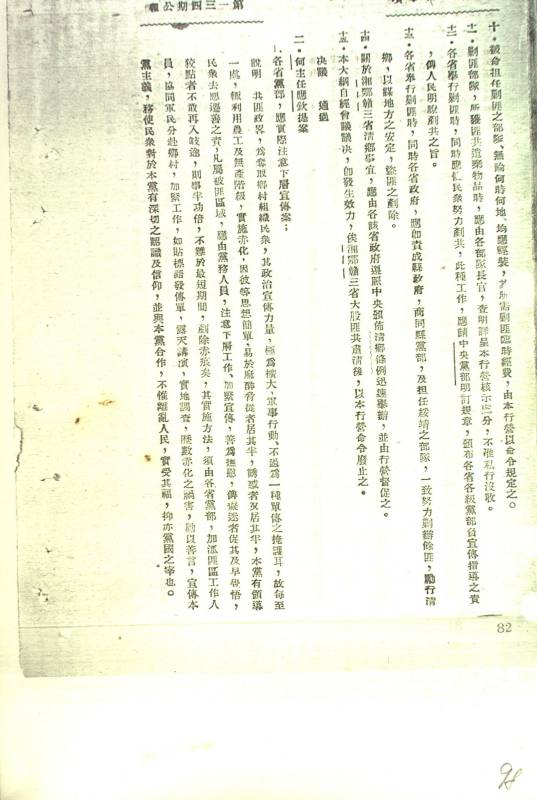 第一三四期公報
十．被命担任剿匪之部隊、無論何時何地、均應輕裝，其所需剿匪臨時經費，由本行營以命令規定之。
十一．剿匪部隊，所獲匪共遺棄物品時，應由各部隊長官，查明詳呈本行營核示處分，不准私行沒收。
十二．各省舉行剿匪時，同時應促民衆努力剿共，此種工作，應請中央黨部明訂規章，頒布各省各級黨部負宣傳指導之責
，俾人民明瞭剿共之旨。
十三．各省奉行剿匪時，同時各省政府，應卽責成縣政府，商同縣黨部，及担任綏靖之部隊，一致努力剿辦餘匪，勵行清
鄉，以謀地方之安定，盜匪之剷除。
十四．關於湘鄂贛三省清鄉事宜，應由各該省政府遵照中央頒佈清鄉條例迅速舉辦，並由行營督促之。
十五．本大綱自經會議議决，卽發生效力，俟湘鄂贛三省大股匪共肅清後，以本行營命令廢止之。
决議　通過
二．何主任應欽提案
1、各省黨部，應實際注意下層宣傳案；
說明　共匪政畧，爲奪取鄉村組織民衆，其政治宣傳力量，極爲擴大，軍事行動、不過爲一種單傳之掩護耳，故每至
一處，極利用農工及無產階級，實施赤化，因彼等思想簡單，易於麻醉脅從者居其半，誘惑者又居其半，本黨有領導
民衆去惡遷善之責，凡屬被匪區域，應由黨務人員，注意下層工作、加緊宣傳，善爲撫慰，俾癡迷者促其及早覺悟，
狡黠者不敢再入歧途，則事半功倍，不難於最短期間，剷除赤痕矣，其實施方法，須由各省黨部，加派匪區工作人
員，協同軍民分赴鄉村，加緊工作，如貼標語發傳單，露天講演，實地調查，歷數赤化之禍害，勸以善言，宣傳本
黨主義，務使民衆對於本黨有深切之認識及信仰，並與本黨合作，不惟離亂人民，實受其福，抑亦黨國之幸也。
82
98